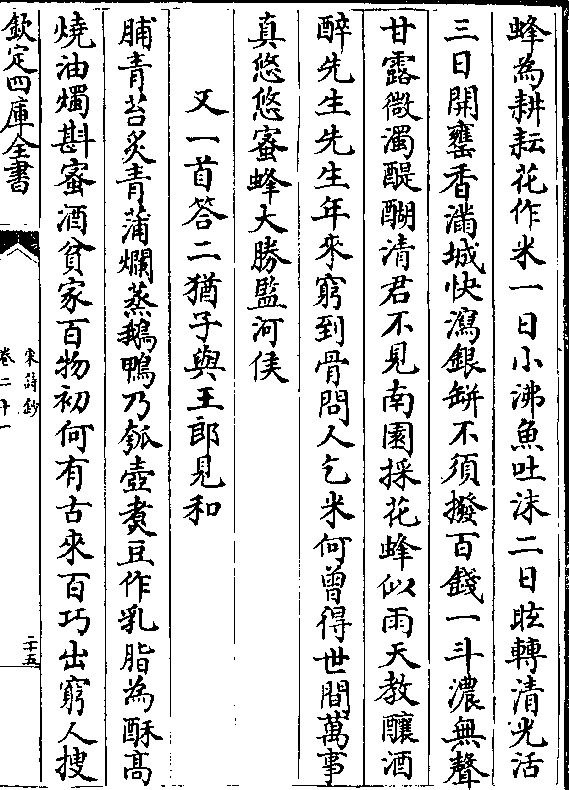 蜂為耕耘花作米一日小沸魚吐沫二日眩轉清光活
三日開甕香滿城快瀉銀缾不須撥百錢一斗濃無聲
甘露微濁醍醐清君不見南園採花蜂似雨天教釀酒
醉先生先生年來窮到骨問人乞米何曾得世間萬事
真悠悠蜜蜂大勝監河侯
又一首答二猶子與王郎見和
脯青苔炙青蒲爛蒸鵝鴨乃瓠壺煮豆作乳脂為酥高
燒油燭斟蜜酒貧家百物初何有古來百巧出窮人搜
欽定四庫全書
宋詩鈔
卷二十一
二十五